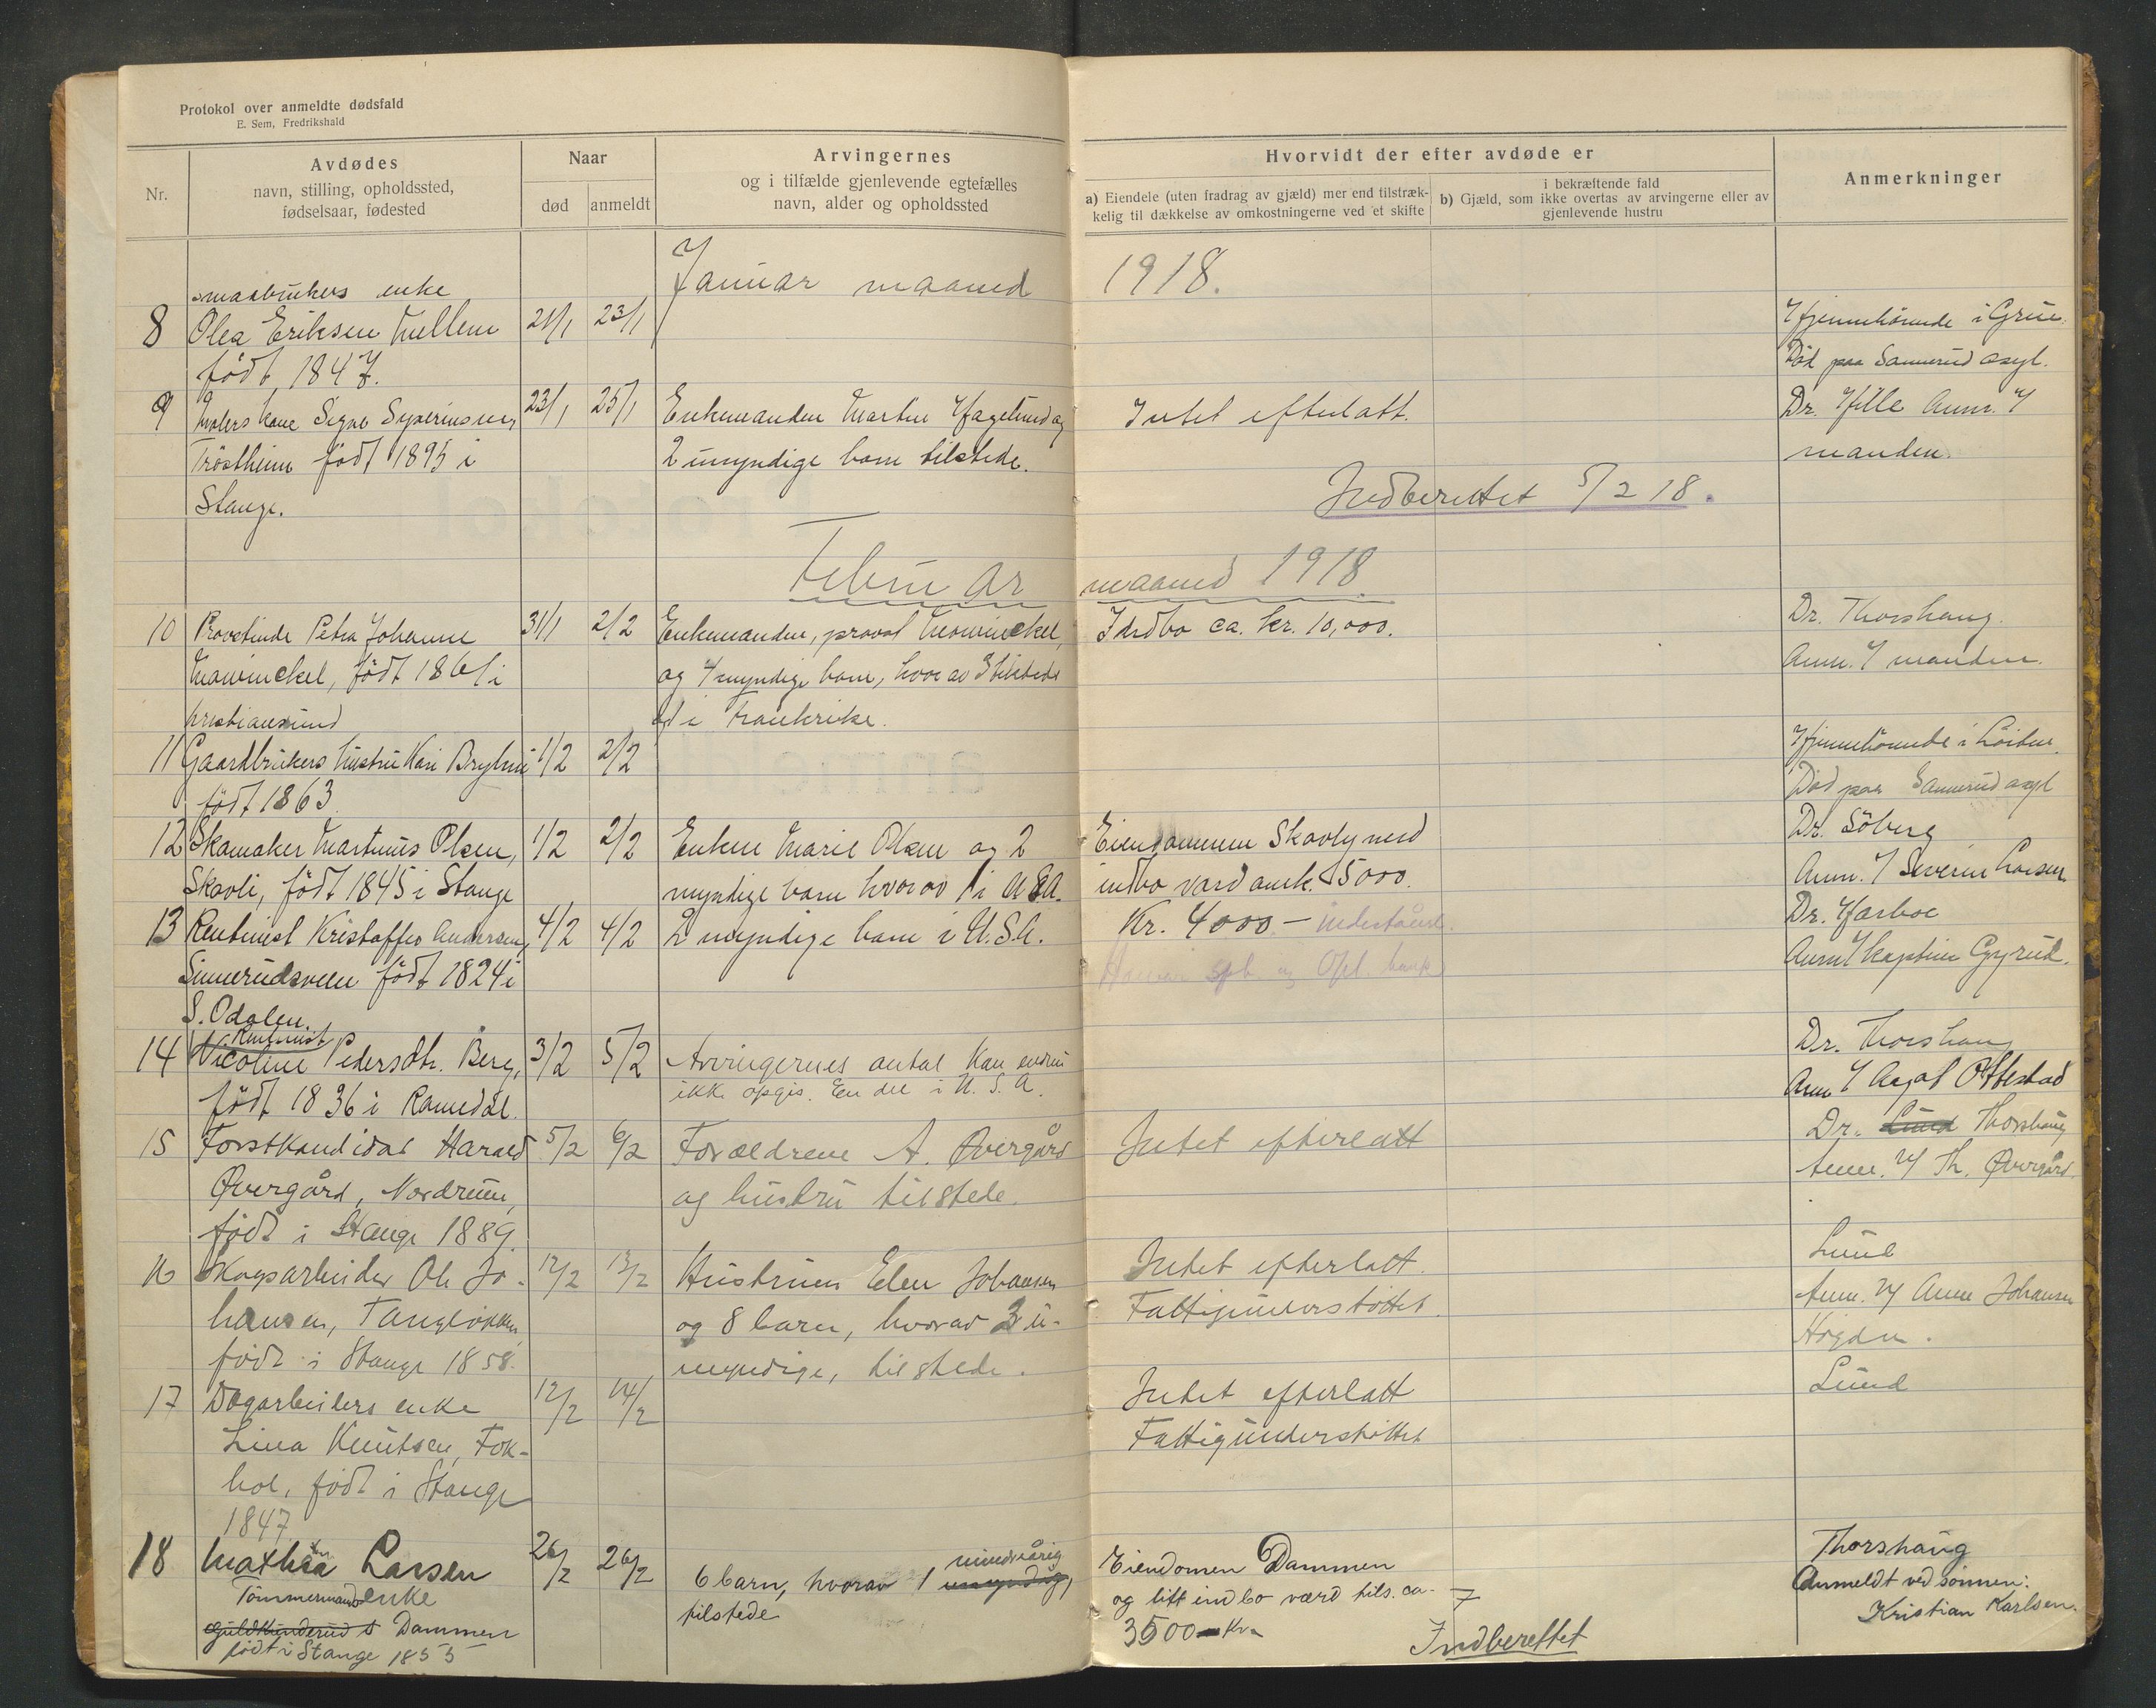 Protokol over anmeldte dødsfald
E. Sem, Fredrikshald
Nr.
Avdødes
navn, stilling, opholdssted,
fødselsaar, fødested
Naar
død
anmeldt
Arvingernes
og i tilfælde gjenlevende egtefælles
navn, alder og opholdssted
Hvorvidt der efter avdøde er
a) Eiendele (uten fradrag av gjæld) mer end tilstræk-
kelig til dækkelse av omkostningerne ved et skifte
i bekræftende fald
b) Gjæld, som ikke overtas av arvingerne eller av
gjenlevende hustru
Anmerkninger
Januar maaned 1918.
smaabrukers enke
8 Olea Eriksen Mellem 21/1 23/1
født 1847.
Hjemmhörende i Grue.
Död paa Sannerud asyl.
9 Malers kone Signe Syverinsen, 23/1 25/1 Enkemanden Martin Hagelund og Intet efterlatt. Dr. Hille Anm. v/
Tröstheim født 1895 i 2 umyndige barn tilstede. manden.
Stange.
Indberettet 5/2 18.
Februar maaned 1918
10 Provstinde Petra Johanne 31/1 2/2 Enkemanden, provst Mowinckel, Indbo ca. kr. 10,000. Dr. Thorshaug.
Mowinckel, født 1861 i og 4 myndige barn, hvorav 3 tilstede Anm. v/ manden.
Kristiansund i Frankrike.
11 Gaardbrukers hustru Kari 1/2 2/2 Hjemmhörende i Löiten.
født 1863 Död paa Sannerud asyl
12 Skomaker Martinus Olsen, 1/2 2/2 Enken Marie Olsen og 2 Eiendommen Skavly med Dr. Söberg
Skavli, født 1845 i Stange myndige barn hvorav 1 i U.S.A. indbo værd 5000. Anm. v/ Severin Larsen
13 Rentenist Kristoffer Andersen, 4/2 4/2 2 myndige barn i U.S.A. Kr. 4000 - Dr. Harboe
født 1824 i Hamar spb. og Opl. bank Anm v/ kaptein Gyrud.
S. Odalen.
Rentenist
14 Nicoline Pedersdtr. Berg, 3/2 5/2 Arvingernes antal kan endnu Dr. Thorshaug
født 1836 i Romedal. ikke opgis. En del i U.S.A. Anm v/ Aagot Ottestad
15 Forstkandidat Harald 5/2 6/2 Forældrene A. Øvergård Intet efterlatt Dr. Lund Thorshaug
Øvergård, Nordrum, og hustru tilstede. Anm. v/ Th. Øvergård.
født i Stange 1889.
16 Skogsarbeider Ole Jo- 12/2 13/2 Hustruen Elen Johansen Intet efterlatt. Lund
hansen, Tangløkken, og 8 barn, hvorav 3 u- Fattigunderstøttet. Anm. v/ Anne Johansen
født i Stange 1858. myndige, tilstede. Høgden.
17 Dagarbeiders enke 12/2 14/2 Intet efterlatt Lund
Lina Knutsen, Fok- Fattigunderstøttet
hol, født i Stange
1847
18 Mathea Larsen 26/2 26/2 6 barn, hvorav 1 umyndig, mindreårig Eiendomen Dammen Thorshaug
Tømmermands enke tilstede og litt indbo værd tils. ca. Anmeldt ved sønnen:
Dammen 3500 Kr. Kristian Karlsen.
født i Stange 1855 Indberettet